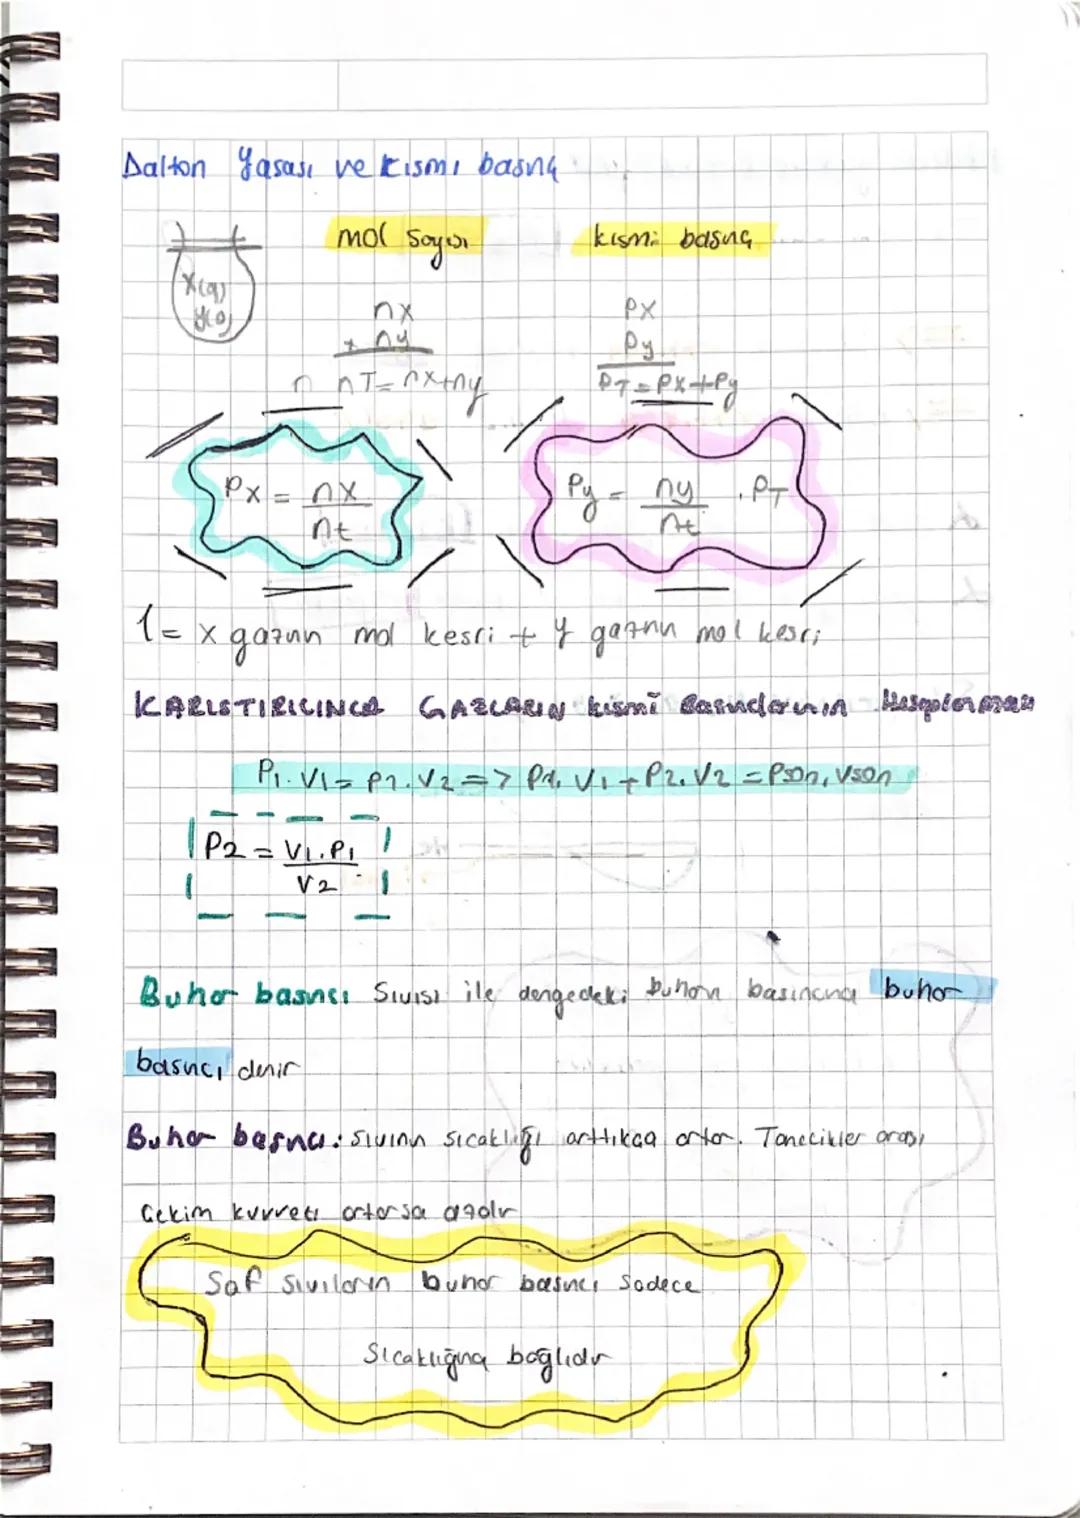 Dalton Yasası ve kısmı basınç
mol sayısı kısmi basınç
X(g)
y(g)
nx
+ ny
n nT = nx+ny
Px
Py
PT = Px+Py
Px = nx / nt
Py = ny / nt . PT
1 = x gazının mol kesri + y gazının mol kesri
KARIŞTIRILINCA GAZLARIN kısmi Basınclarının Hesaplanması
P1. V1 = P2. V2 => P1. V1 + P2. V2 = Pson. Vson
P2 = V1. P1 / V2
Buhar basıncı Sıvısı ile dengedeki buharın basıncına buhar
basıncı denir
Buhar basıncı: sıvının sıcaklığı arttıkça artar. Tanecikler arası
Çekim kuvveti artarsa azalır
Saf sıvıların buhar basıncı sadece
Sıcaklığına bağlıdır